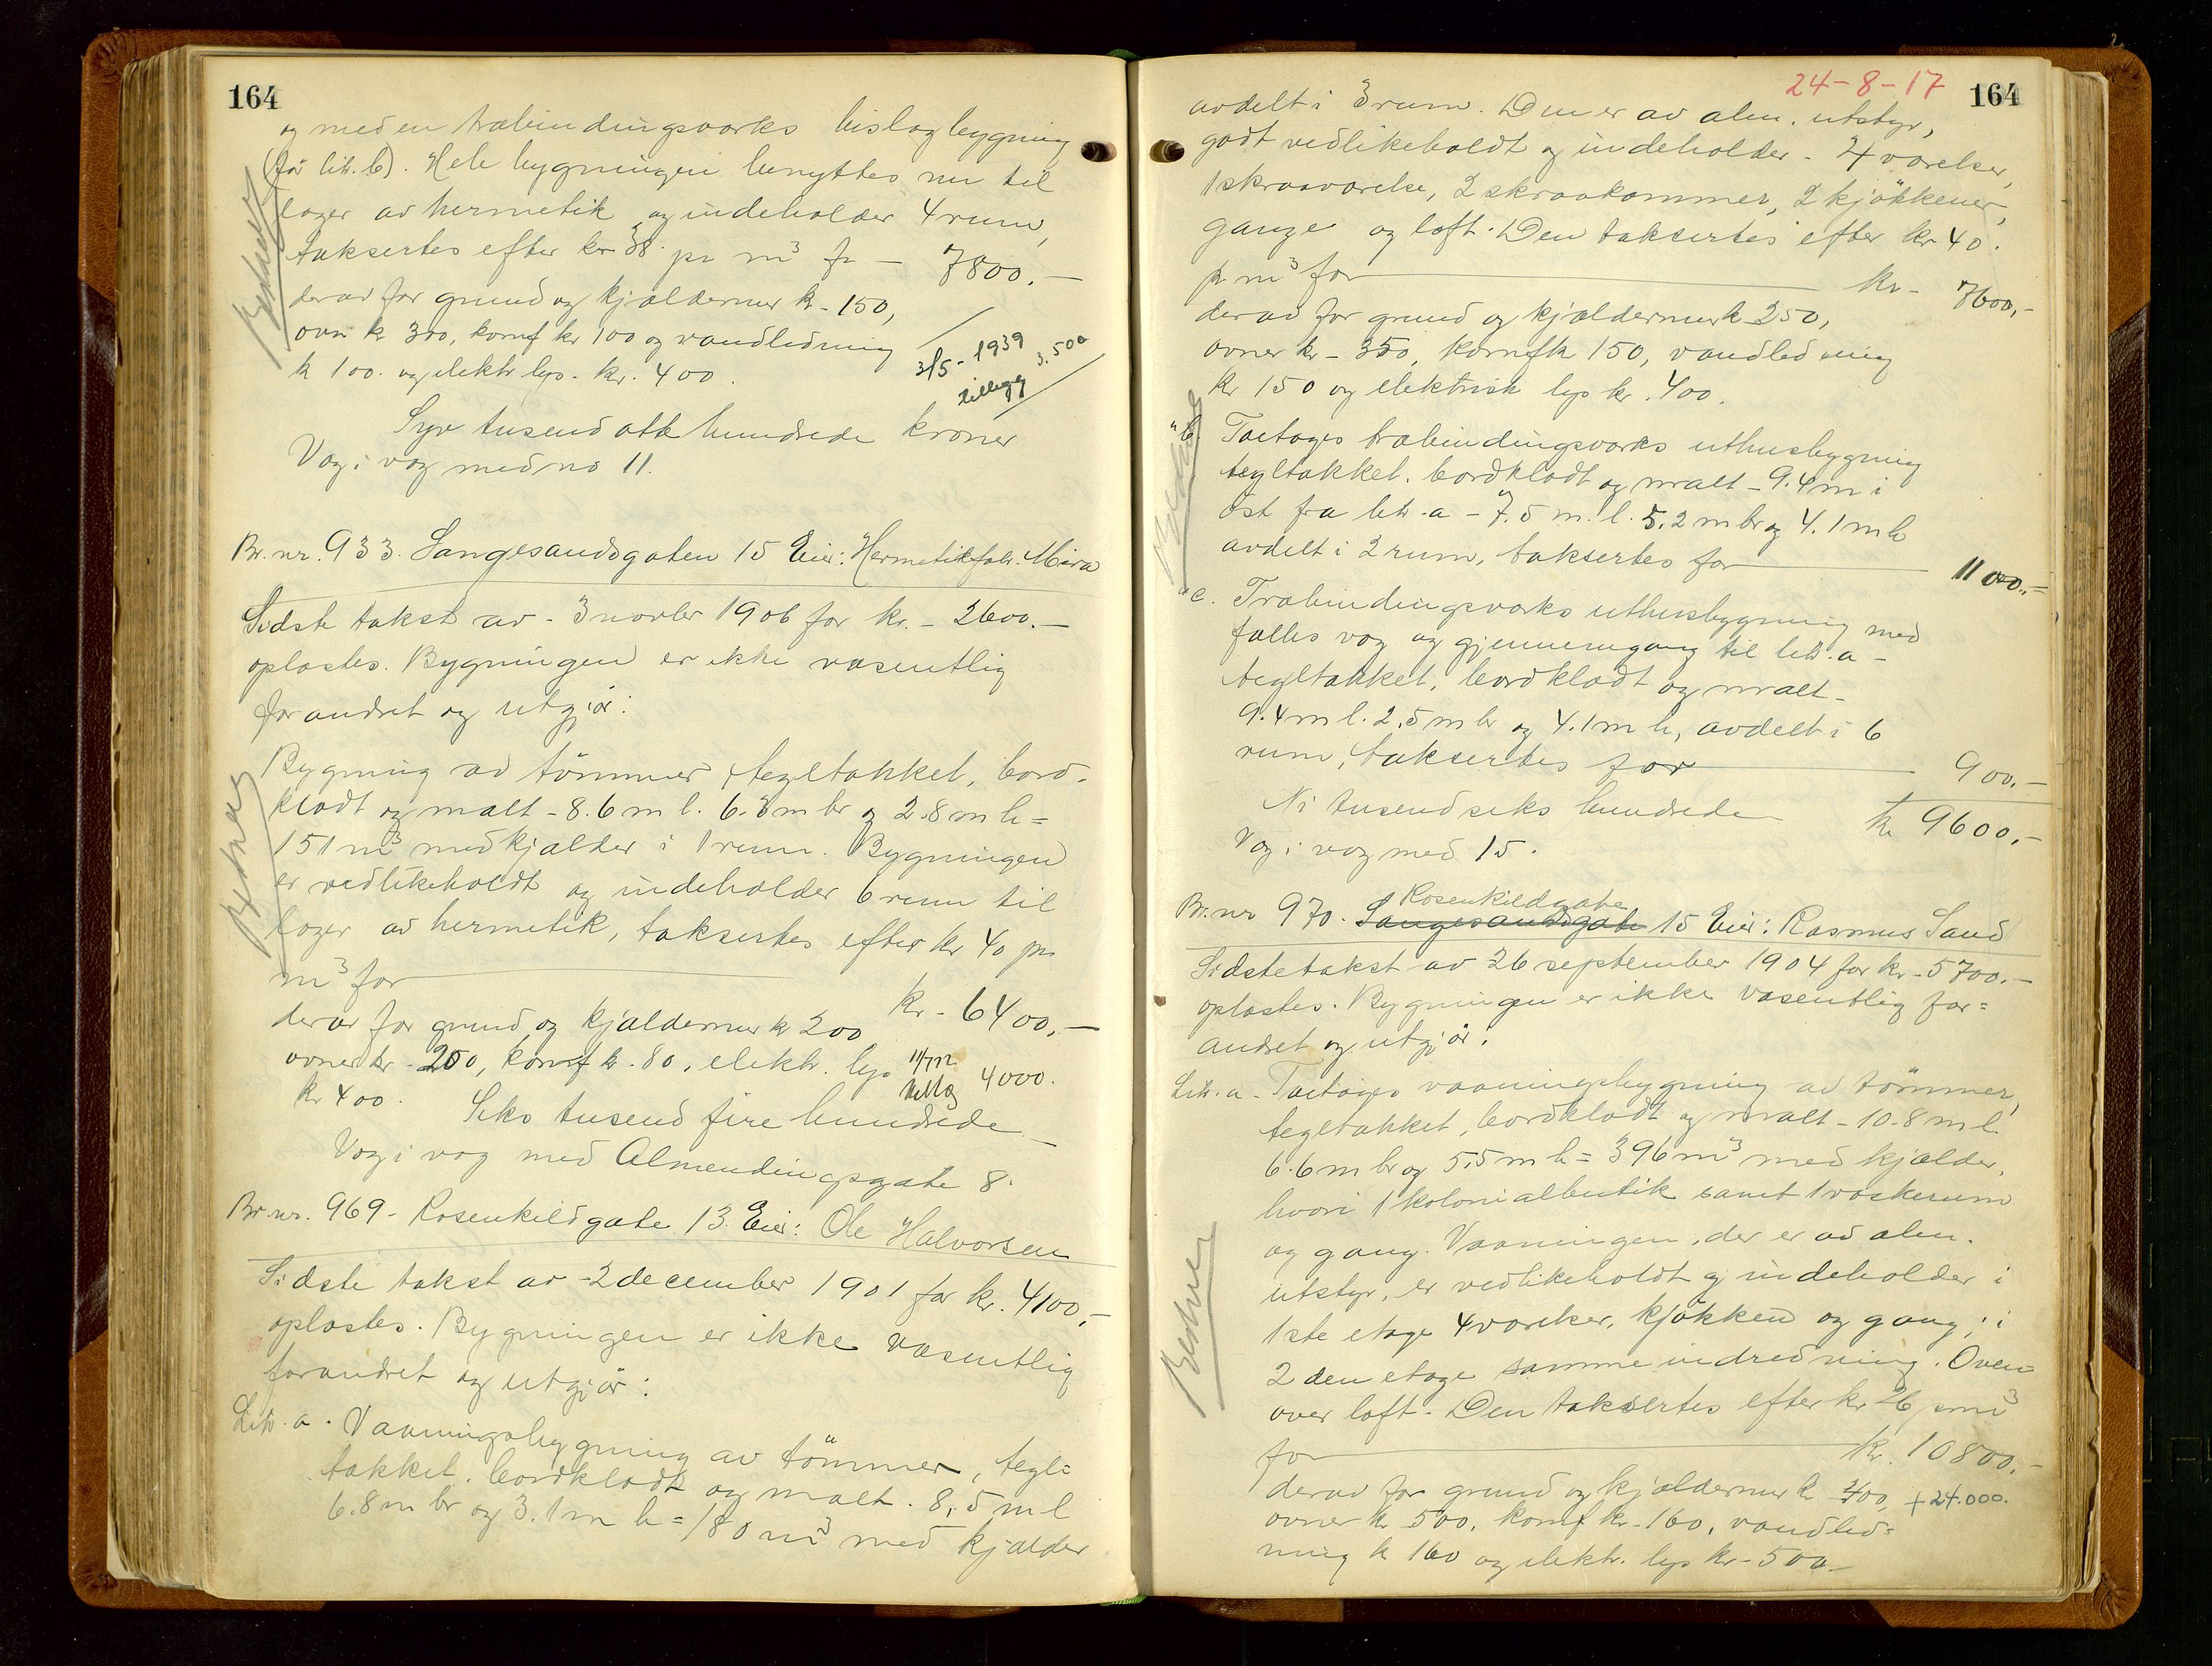 164
og med en træbindingsværks bislagbygning
(før litr. b). Hele bygningen benyttes nu til
lager av hermetik og indeholder 4 rum,
taksertes efter kr 38 pr m³ fr — 7800.—
derav for grund og kjældermur kr - 150,
ovn kr 300, komf kr 100 og vandledning
kr 100. og elektr lys - kr. 400.
3/5 - 1939
tillegg 3.500
Syv tusend otte hundrede kroner
Væg i væg med no 11.
Br. nr. 933. Langesandsgaten 15 Eier: Hermetikfabr. Mira
Sidste takst av - 3 novbr 1906 for kr. - 2600.—
oplæstes. Bygningen er ikke væsentlig
forandret og utgjör:
Bygning av tömmer, tegltakket, bord-
klædt og malt - 8.6 m l. 6.3 m br og 2.8 m h =
151 m³ med kjælder i 1 rum. Bygningen
er vedlikeholdt og indeholder 6 rum til
lager av hermetik, taksertes efter kr 40 pr
m³ for
kr - 6400.—
derav for grund og kjældermur kr 200
ovner kr - 200, komf kr - 80, elektr. lys
kr 400.
4000.
Seks tusend fire hundrede —
Væg i væg med Almendingsgate 8.
Br. nr. 969 - Rosenkildgate 13. Eier: Ole Halvorsen
Sidste takst av - 2 december 1901 for kr. 4100,-
oplæstes. Bygningen er ikke væsentlig
forandret og utgjör:
Litr. a. Vaaningsbygning av tömmer, tegl=
takket, bordklædt og malt. 8,5 m l
6.8 m br og 3.1 m h = 180 m³ med kjælder
24-8-17 164
avdelt i 3 rum. Den er av alm. utstyr,
godt vedlikeholdt og indeholder - 4 værelser,
1 skraaværelse, 2 skraakammer, 2 kjökkener,
gange og loft. Den taksertes efter kr 40.
pr m³ for kr - 7600,-
derav for grund og kjældermur kr 250,
ovner kr - 350, komf kr 150, vandledning
kr 150 og elektrisk lys kr. 400.
" b. Toetages træbindingsværks uthusbygning
tegltakket, bordklædt og malt - 9.4 m i
öst fra litr. a - 7.5 m. l. 5.2 m br og 4.1 m h
avdelt i 2 rum, taksertes for 1100.-
" c. Træbindingsværks uthusbygning med
fælles væg og gjennemgang til litr. a -
tegltakket, bordklædt og malt -
9.4 m l. 2.5 m br og 4.1 m h, avdelt i 6
rum, taksertes for 900.-
Ni tusend seks hundrede kr 9600,-
Væg i væg med 15.
Rosenkildgate
Br. nr 970. Langesandsgate 15 Eier: Rasmus Sand
Sidste takst av 26 september 1904 for kr - 5700.—
oplæstes. Bygningen er ikke væsentlig for=
andret og utgjör:
Litr. a - Toetages vaaningsbygning av tömmer,
tegltakket, bordklædt og malt - 10.8 m l.
6.6 m br og 5.5 m h = 396 m³ med kjælder,
hvori 1 kolonialbutik samt 1 vaskerum
og gang. Vaaningen, der er av alm.
utstyr, er vedlikeholdt og indeholder i
1ste etage 4 værelser, kjökken og gang; i
2den etage samme indredning. Oven=
over loft. Den taksertes efter kr 26 pr m³
for kr. 10800.-
derav for grund og kjældermur kr 400, + 24.000.
ovner kr 500, komf kr - 160, vandled=
ning kr 160 og elektr. lys kr - 500 -